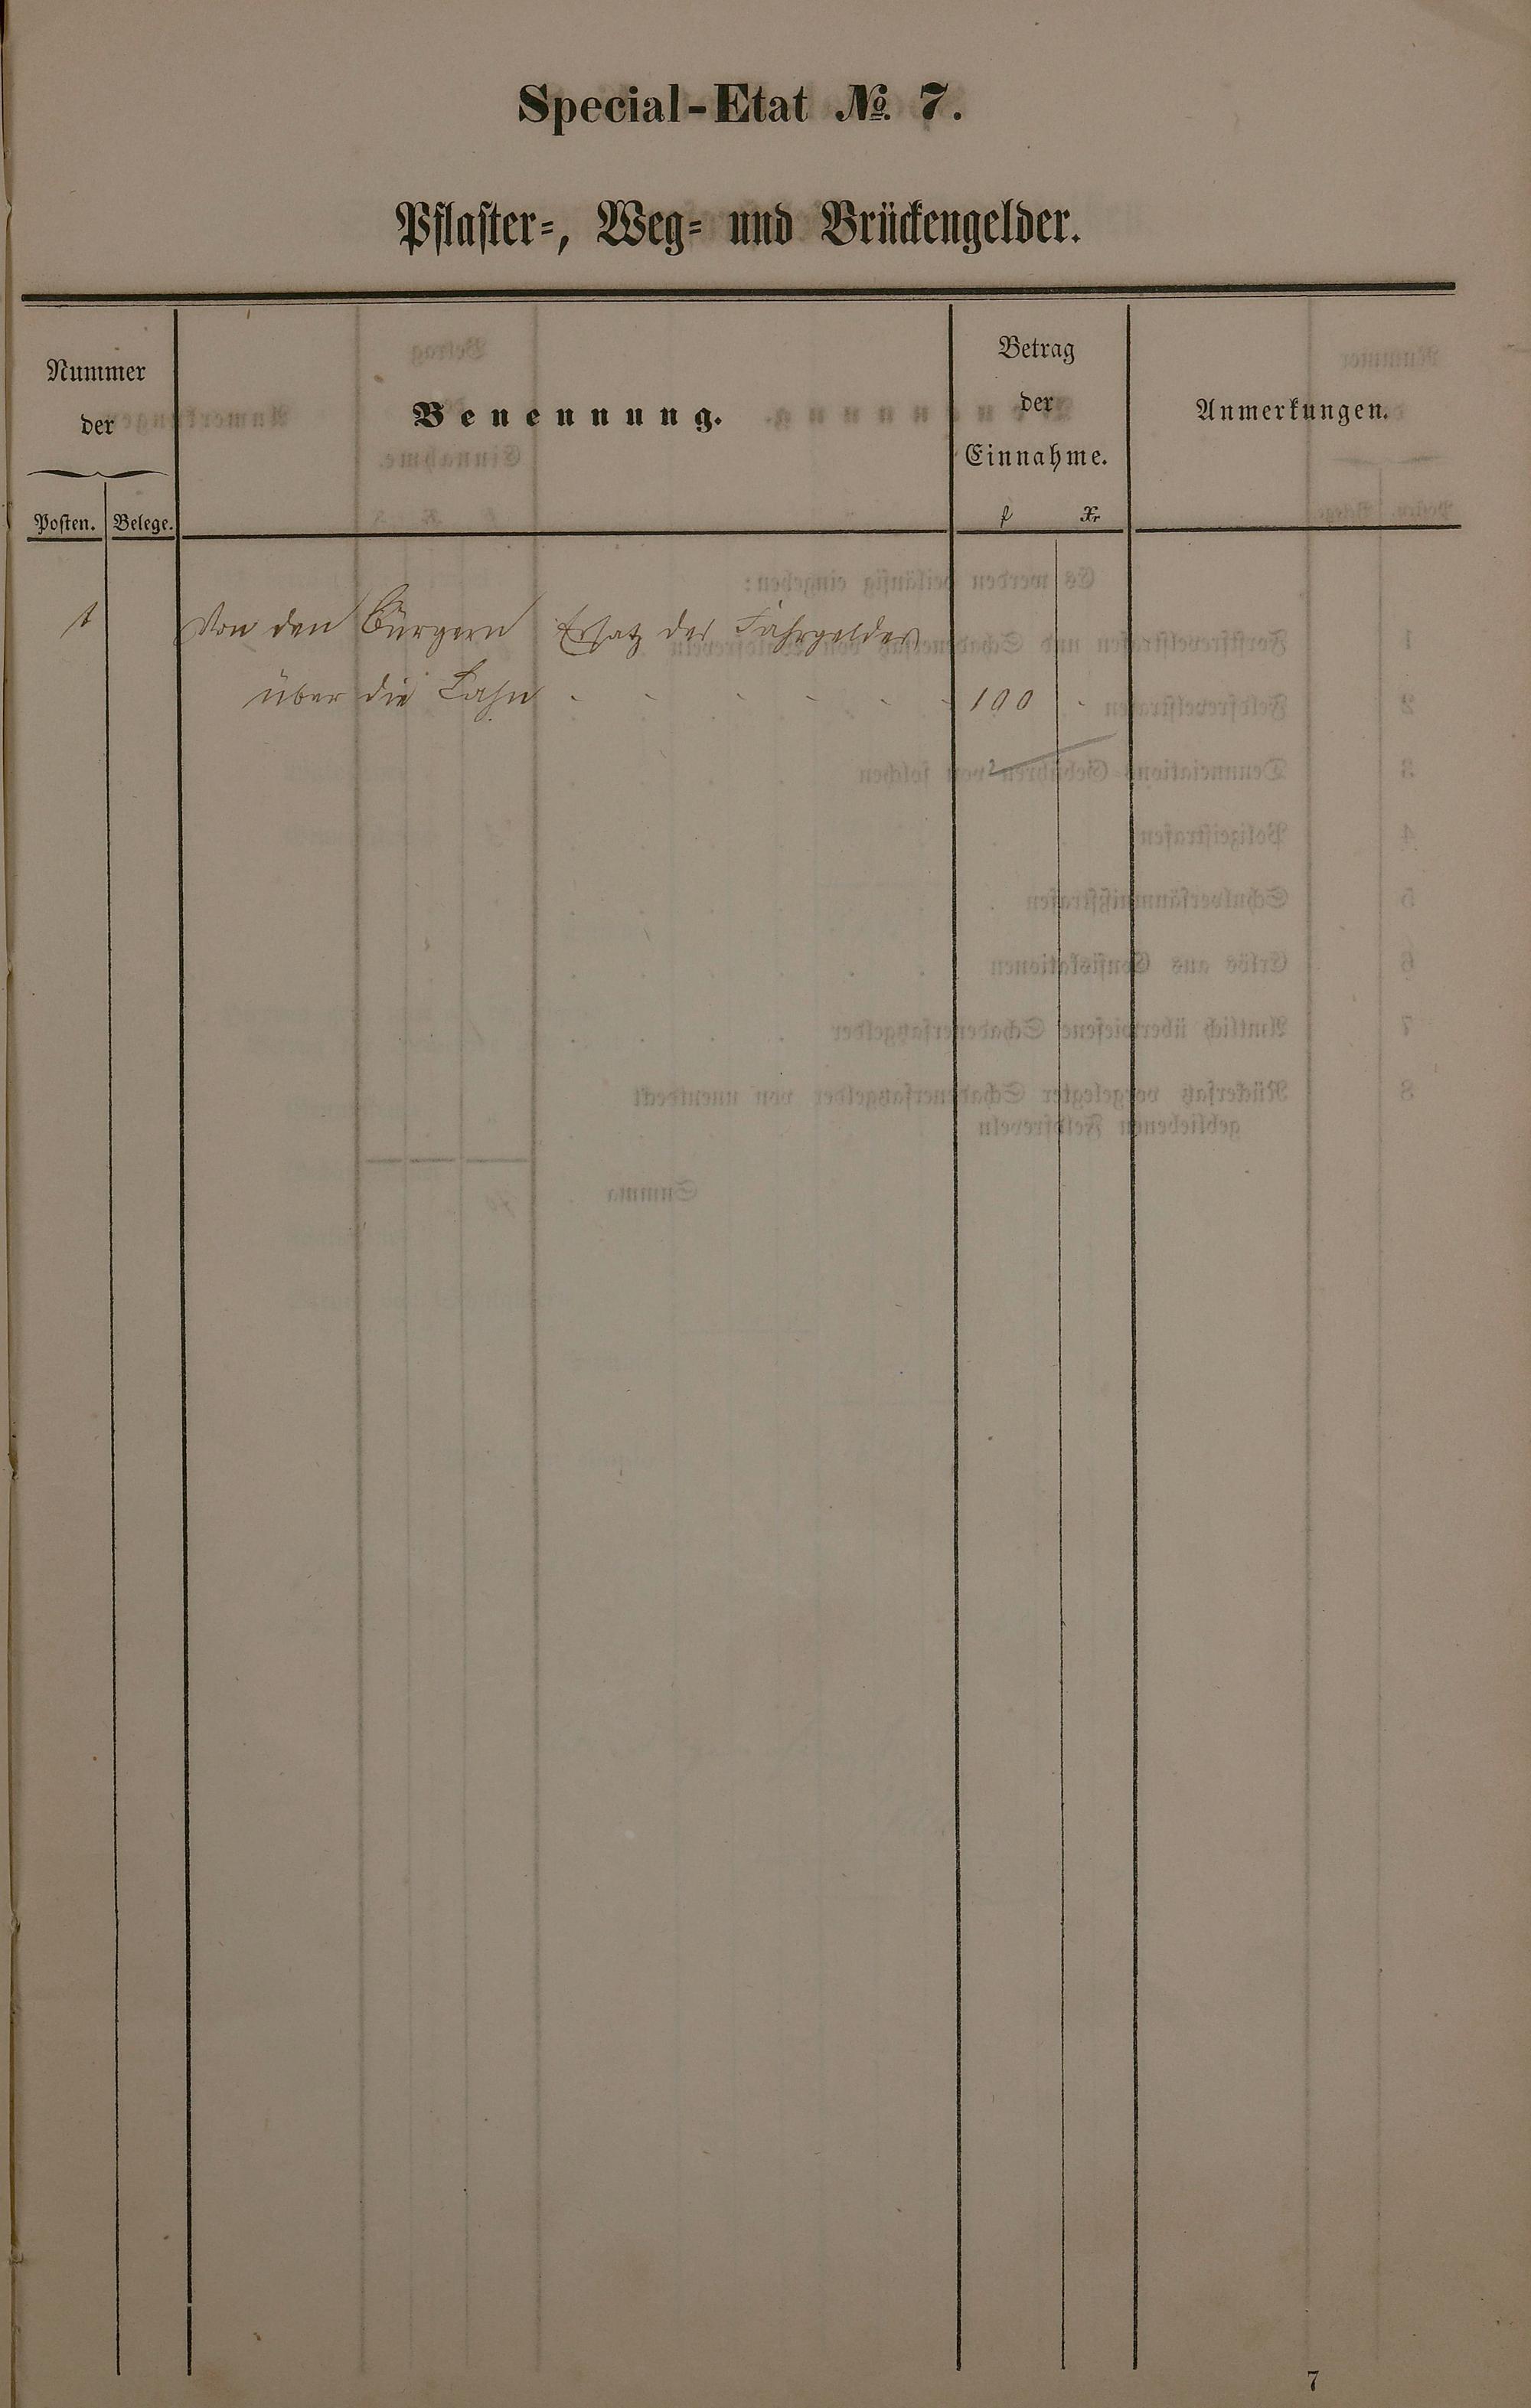 Special-Etat №. 7.
Pflaster-, Weg- und Brückengelder.
Nummer
der
Posten. Belege.
Benennung.
Betrag
der
Einnahme.
f Xr
Anmerkungen.
1 Von den Bürgern Ersatz der Fahrgelder
über die Lahn - - - - - - 100 -
7